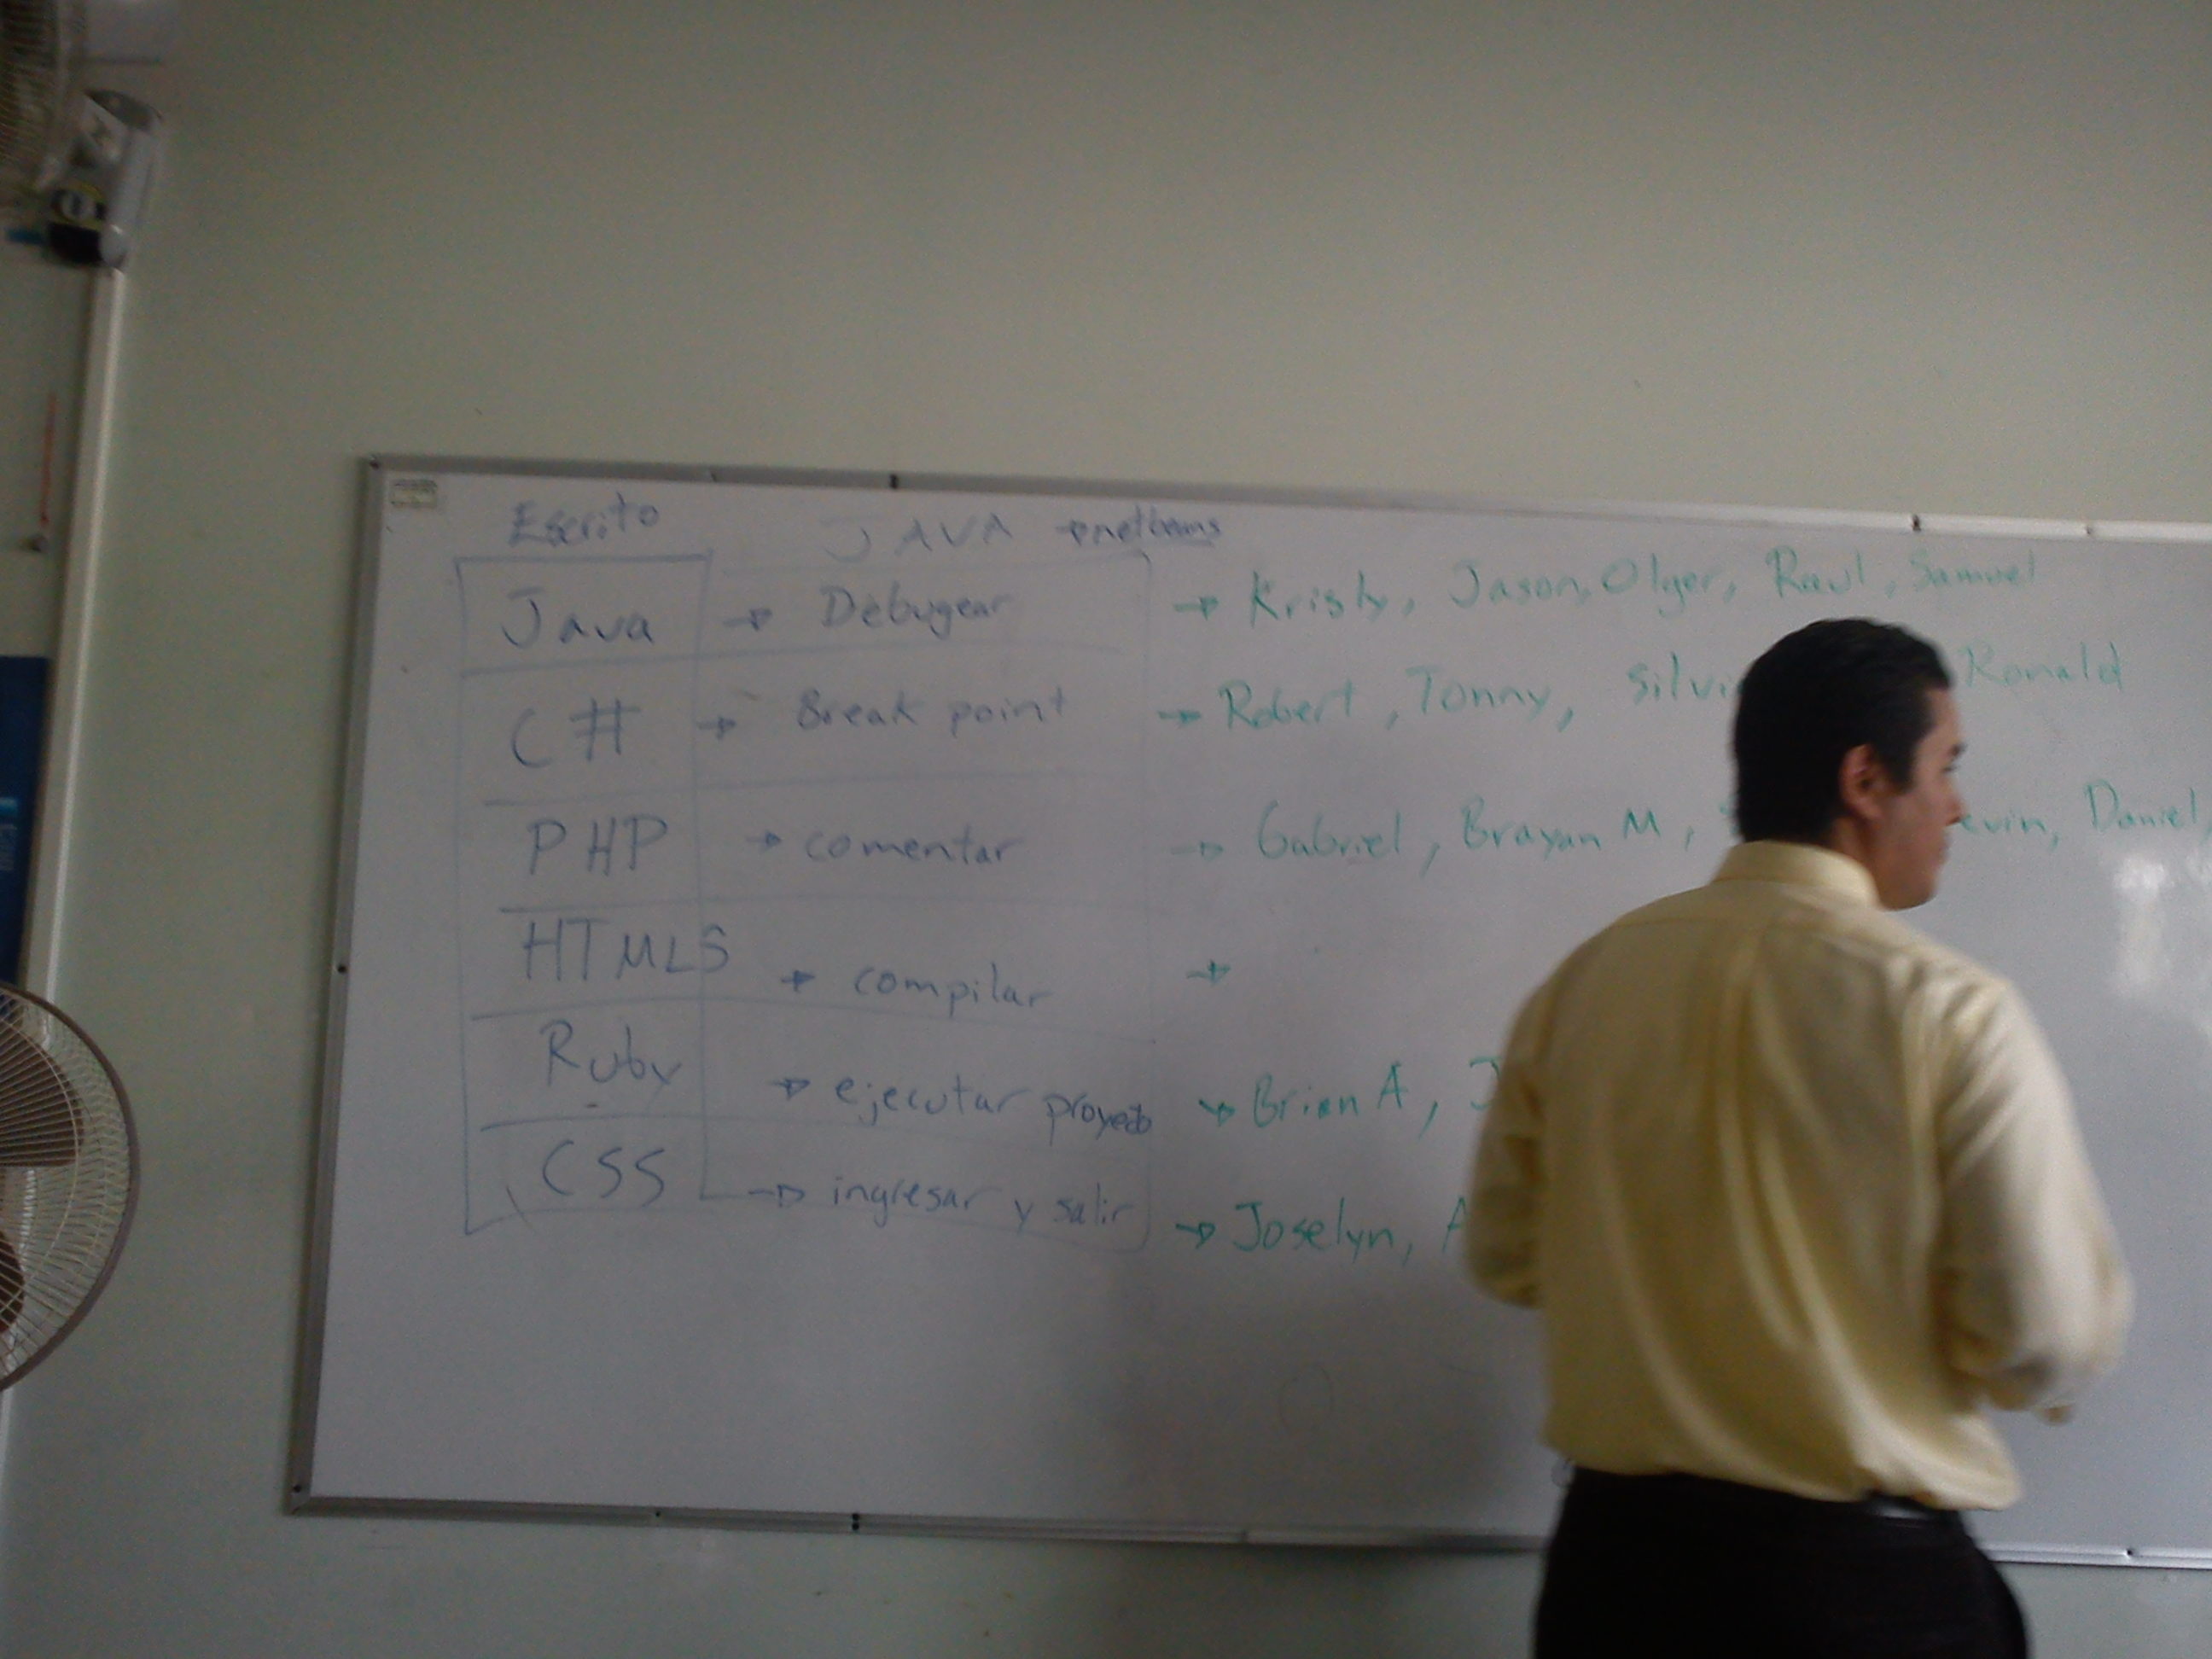 Escrito JAVA → netbeans
Java → Debugear → Kristy, Jason, Olger, Raul, Samuel
C# → Break point → Robert, Tonny, Silvi Ronald
PHP → comentar → Gabriel, Brayan M, evin, Daniel,
HTML5 → compilar →
Ruby → ejecutar proyecto → Brian A, J
CSS → ingresar y salir → Joselyn, A